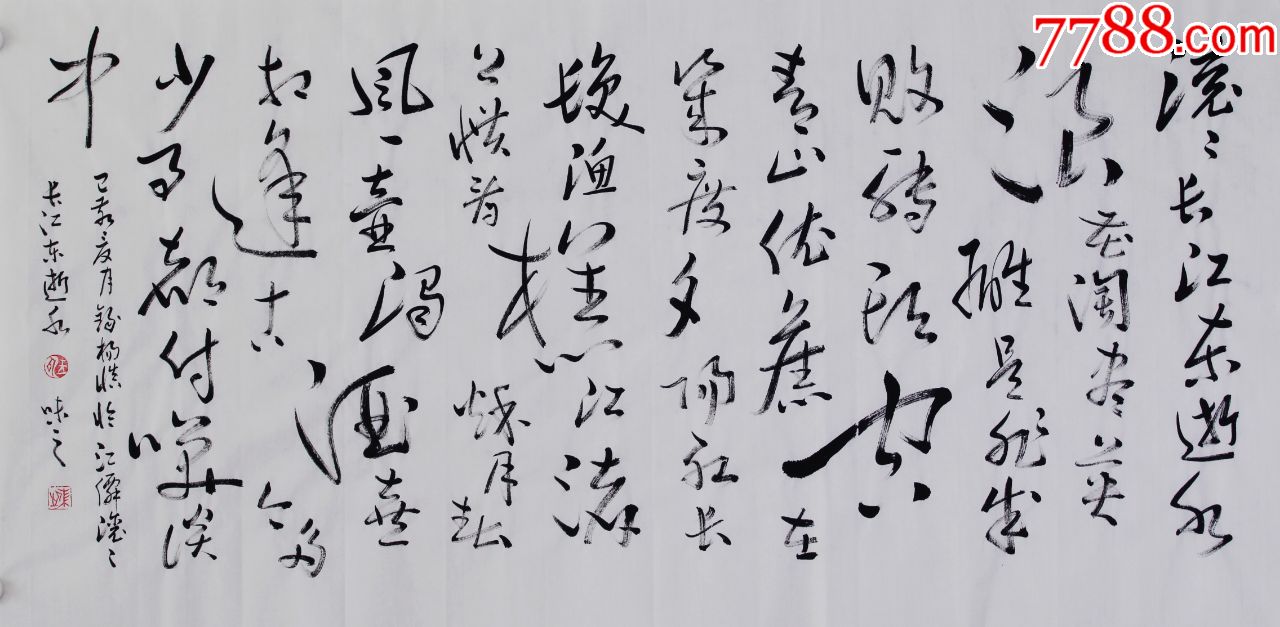 滚〻长江东逝水
浪花淘尽英
雄是非成
败转头空
青山依旧在
几度夕阳红
发渔樵江渚
上惯看秋月春
风一壶浊酒喜
相逢古今多
少事都付笑谈
中
己亥夏月録杨慎临江仙滚〻
长江东逝水 味之
7788.com